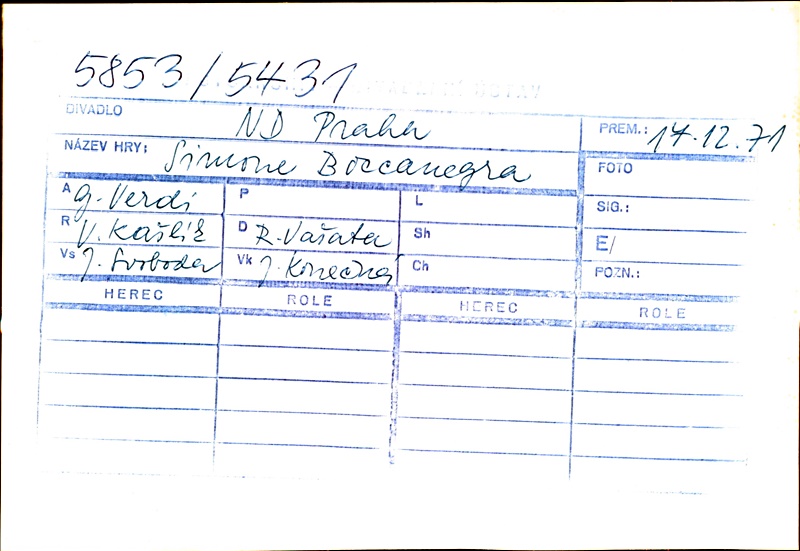 5853/5431
DIVADLO ND Praha PREM.: 17.12.71
NÁZEV HRY: Simone Boccanegra FOTO
A G. Verdi P L SIG.:
R V. Kašlík D R. Vašata Sh E/
Vs J. Svoboda Vk J. Konečná Ch POZN.:
HEREC ROLE HEREC ROLE